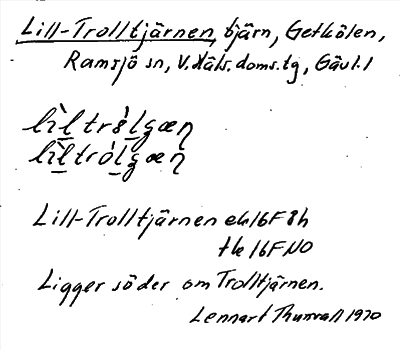 Lill-Trolltjärnen, tjärn, Getkölen,
Ramsjö sn, V.Häls.doms.tg, Gävl.l
Lill-Trolltjärnen ek 16F 8h
tk 16F NO
Ligger söder om Trolltjärnen.
Lennart Thunvall 1970